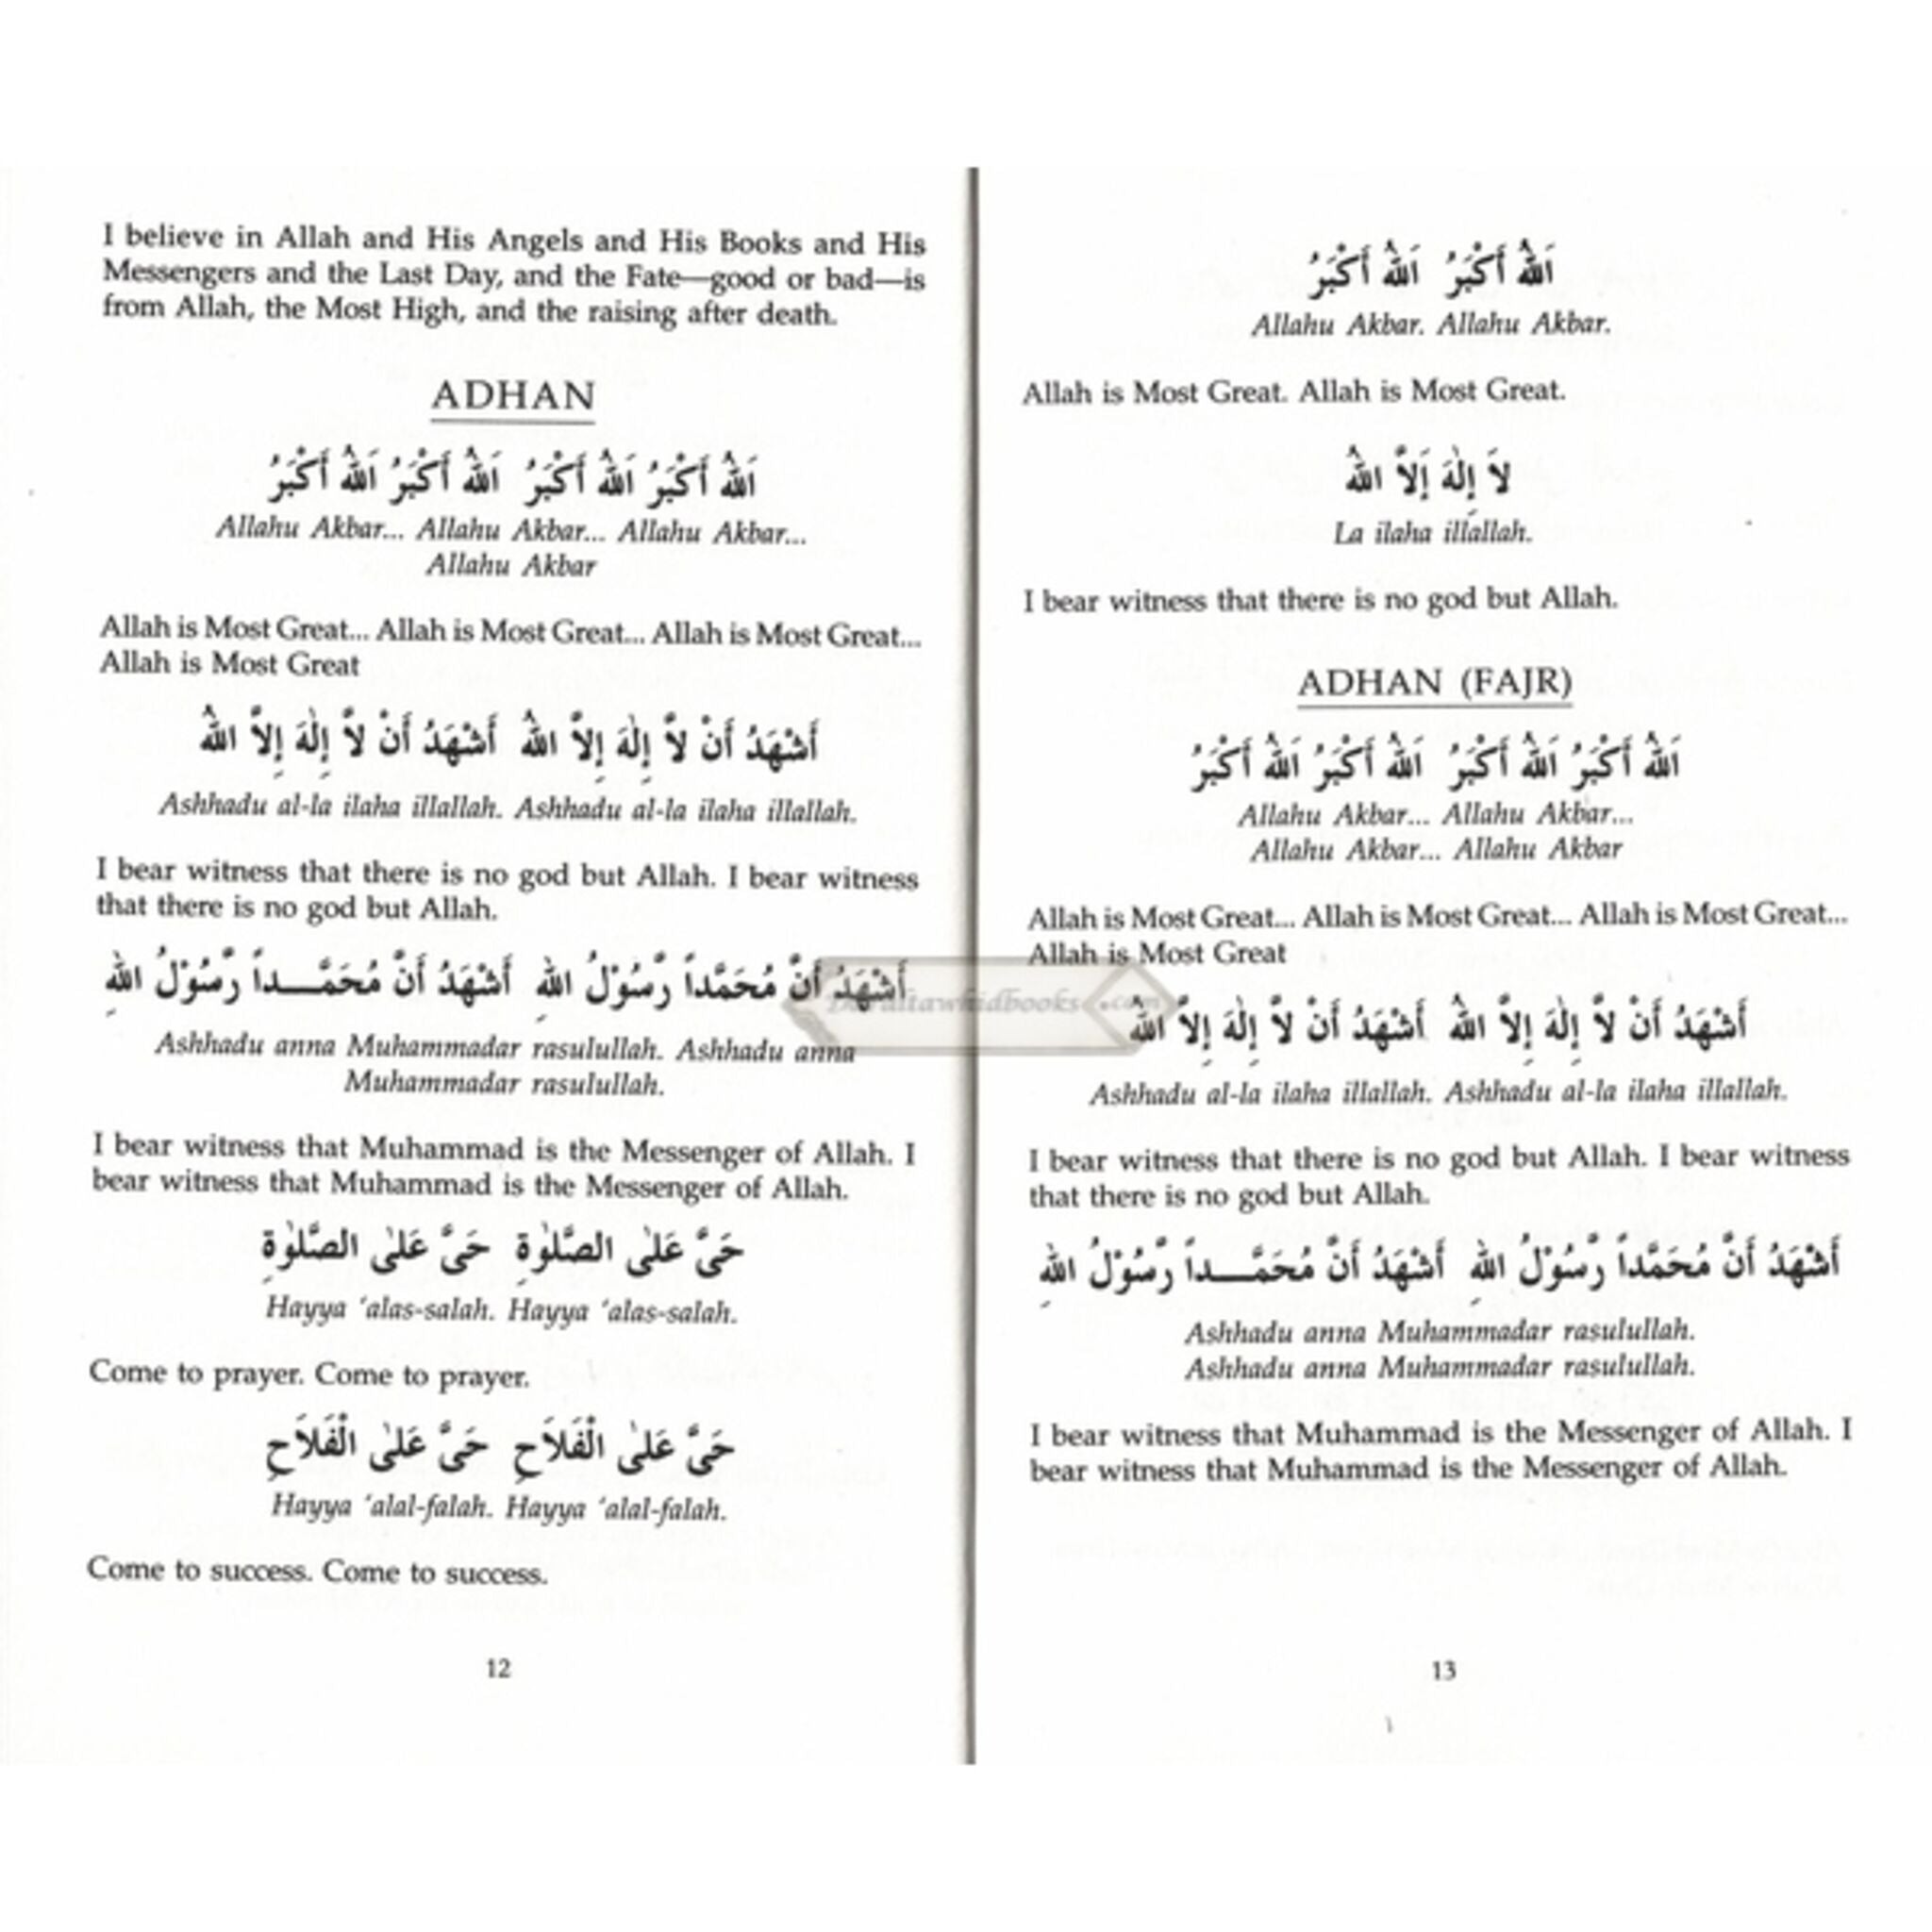 I believe in Allah and His Angels and His Books and His
Messengers and the Last Day, and the Fate—good or bad—is
from Allah, the Most High, and the raising after death.
ADHAN
اَللهُ أَكْبَرُ اَللهُ أَكْبَرُ اَللهُ أَكْبَرُ اَللهُ أَكْبَرُ
Allahu Akbar... Allahu Akbar... Allahu Akbar...
Allahu Akbar
Allah is Most Great... Allah is Most Great... Allah is Most Great...
Allah is Most Great
أَشْهَدُ أَنْ لاَّ إِلٰهَ إِلاَّ اللهُ أَشْهَدُ أَنْ لاَّ إِلٰهَ إِلاَّ اللهُ
Ashhadu al-la ilaha illallah. Ashhadu al-la ilaha illallah.
I bear witness that there is no god but Allah. I bear witness
that there is no god but Allah.
أَشْهَدُ أَنَّ مُحَمَّداً رَّسُوْلُ اللهِ أَشْهَدُ أَنَّ مُحَمَّـــداً رَّسُوْلُ اللهِ
Ashhadu anna Muhammadar rasulullah. Ashhadu anna
Muhammadar rasulullah.
I bear witness that Muhammad is the Messenger of Allah. I
bear witness that Muhammad is the Messenger of Allah.
حَىَّ عَلىٰ الصَّلٰوةِ حَىَّ عَلىٰ الصَّلٰوةِ
Hayya ‘alas-salah. Hayya ‘alas-salah.
Come to prayer. Come to prayer.
حَىَّ عَلىٰ الْفَلاَحِ حَىَّ عَلىٰ الْفَلاَحِ
Hayya ‘alal-falah. Hayya ‘alal-falah.
Come to success. Come to success.
12
اَللهُ أَكْبَرُ اَللهُ أَكْبَرُ
Allahu Akbar. Allahu Akbar.
Allah is Most Great. Allah is Most Great.
لاَ إِلٰهَ إِلاَّ اللهُ
La ilaha illallah.
I bear witness that there is no god but Allah.
ADHAN (FAJR)
اَللهُ أَكْبَرُ اَللهُ أَكْبَرُ اَللهُ أَكْبَرُ اَللهُ أَكْبَرُ
Allahu Akbar... Allahu Akbar...
Allahu Akbar... Allahu Akbar
Allah is Most Great... Allah is Most Great... Allah is Most Great...
Allah is Most Great
أَشْهَدُ أَنْ لاَّ إِلٰهَ إِلاَّ اللهُ أَشْهَدُ أَنْ لاَّ إِلٰهَ إِلاَّ اللهُ
Ashhadu al-la ilaha illallah. Ashhadu al-la ilaha illallah.
I bear witness that there is no god but Allah. I bear witness
that there is no god but Allah.
أَشْهَدُ أَنَّ مُحَمَّداً رَّسُوْلُ اللهِ أَشْهَدُ أَنَّ مُحَمَّـــداً رَّسُوْلُ اللهِ
Ashhadu anna Muhammadar rasulullah.
Ashhadu anna Muhammadar rasulullah.
I bear witness that Muhammad is the Messenger of Allah. I
bear witness that Muhammad is the Messenger of Allah.
13